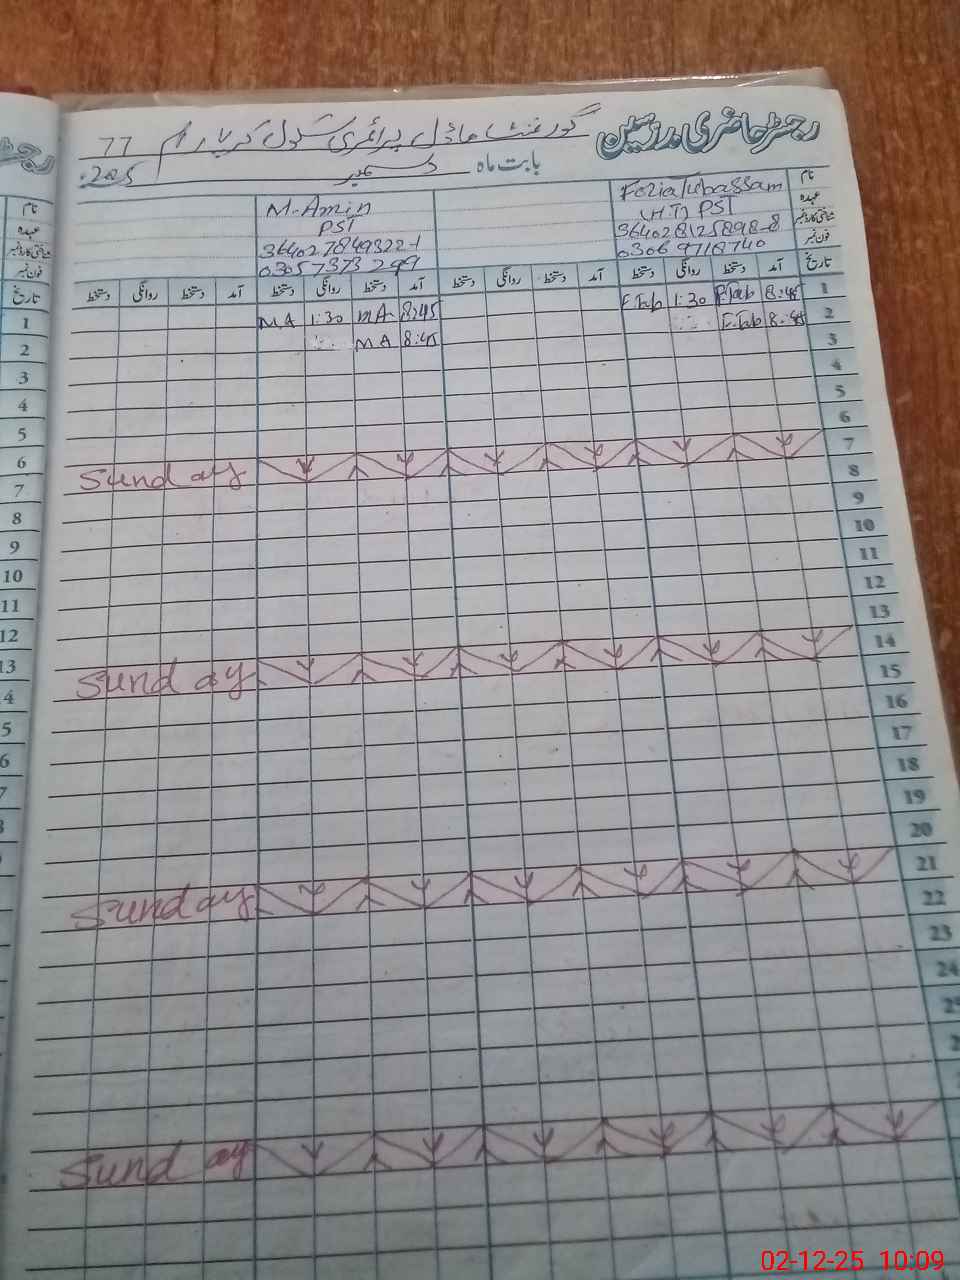 رجسٹر حاضری مدرسین
گورنمنٹ ماڈل پرائمری سکول
77
بابت ماہ دسمبر 2025
نام
عہدہ
شناختی کارڈ نمبر
فون نمبر
Fozia Tubassam
(H.T) PST
364028125898-8
03069718740
M-Amin
PST
364027849322-1
03057373299
تاریخ آمد دستخط روانگی دستخط آمد دستخط روانگی دستخط آمد دستخط روانگی دستخط آمد دستخط روانگی دستخط
1 8:45 F.Tab 1:30 F.Tab 8:45 MA 1:30 MA
2 8:45 F.Tab 8:45 MA
3
4
5
6
7 Sunday
8
9
10
11
12
13
14 Sunday
15
16
17
18
19
20
21 Sunday
22
23
24
Sunday
نام
عہدہ
شناختی کارڈ نمبر
فون نمبر
تاریخ
1
2
3
4
5
6
7
8
9
10
11
12
13
02-12-25 10:09